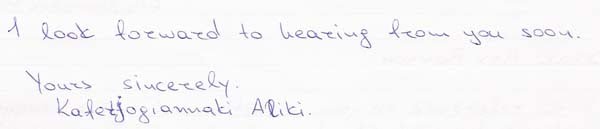 I look forward to hearing from you soon.
Yours sincerely.
Kafetjogiannaki Aliki.